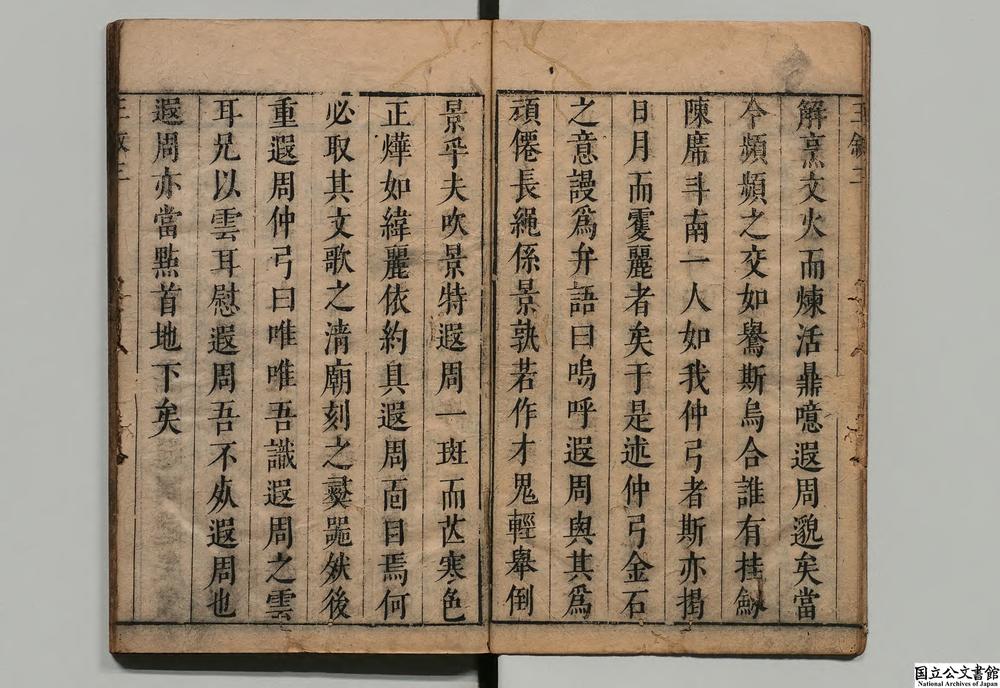 解烹文火而煉活鼎噫遐周邈矣當
今頻頻之交如鸒斯烏合誰有挂劒
陳席斗南一人如我仲弓者斯亦揭
日月而雙麗者矣于是述仲弓金石
之意謾為弁語曰嗚呼遐周與其為
頑僊長繩係景孰若作才鬼輕舉倒
景乎夫吹景特遐周一斑而芒寒色
正燁如緯麗依約具遐周面目焉何
必取其文歌之淸廟刻之彞噐然後
重遐周仲弓曰唯唯吾識遐周之雲
耳兄以雲耳慰遐周吾不从遐周也
遐周亦當點首地下矣
国立公文書館
National Archives of Japan